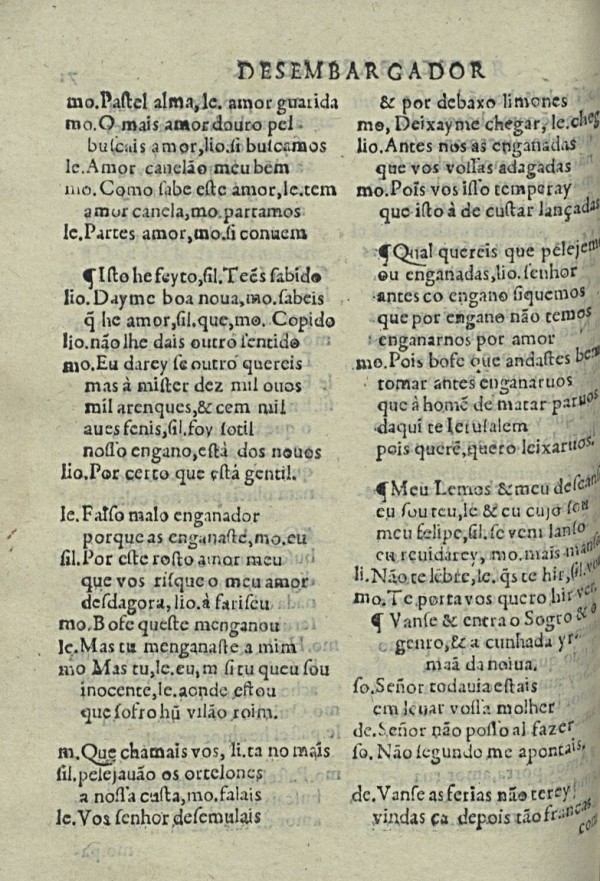 DESEMBARGADOR
mo.Paſtel alma,le. amor guarida
mo.O mais amor douro pel
buſcais amor,lio.ſi buſcamos
le.Amor canelão meu bem
mo.Como ſabe eſte amor,le.tem
amor canela,mo.partamos
le.Partes amor,mo.ſi conuem
¶Iſto he feyto,ſil.Teẽs ſabido
lio.Dayme boa noua,mo.ſabeis
q̃ he amor,ſil.que,mo. Copido
lio.não lhe dais outro ſentido
mo.Eu darey ſe outro quereis
mas à miſter dez mil ouos
mil arenques,& cem mil
aues fenis,ſil.foy ſotil
noſſo engano,eſtá dos nouos
lio.Por certo que eſtá gentil.
le.Falſo malo enganador
porque as enganaſte,mo.eu
ſil.Por eſte roſto amor meu
que vos riſque o meu amor
deſdagora,lio.à fariſeu
mo.Bofe queſte menganou
le.Mas tu menganaſte a mim
mo Mas tu,le.eu,m ſi tu queu ſou
inocente,le.aonde eſtou
que ſofro hũ vilão roim.
m.Que chamais vos, li.ta no mais
ſil.pelejauão os ortelones
a noſſa cuſta,mo.falais
le.Vos ſenhor deſemulais
& por debaxo limones
mo, Deixayme chegar, le.cheg
lio.Antes nos as enganadas
que vos voſſas adagadas
mo.Pois vos iſſo temperay
que iſto à de cuſtar lançadas
¶Qual quereis que pelejemo
ou enganadas,lio.ſenhor
antes co engano fiquemos
que por engano não temos
enganarnos por amor
mo.Pois bofe que andaſtes bem
tomar antes enganaruos
que à homẽ de matar paruos
daqui te Ieruſalem
pois querẽ,quero leixaruos.
¶Meu Lemos & meu deſcanſ
eu ſou teu,le & eu cujo ſou
meu felipe,ſil.ſe vem lanſo
eu reuidarey, mo.mais manſo
li.Não te lẽbre,le.q̃s te hir,ſil.vou
mo.Te porta vos quero hir ver.
¶ Vanſe & entra o Sogro & o
genro,& a cunhada yr-
maã da noiua.
ſo.Señor todauia eſtais
em leuar voſſa molher
de.Señor não poſſo al fazer
ſo. Não ſegundo me apontais.
de.Vanſe as ferias não terey
vindas ça depois tão francas
com